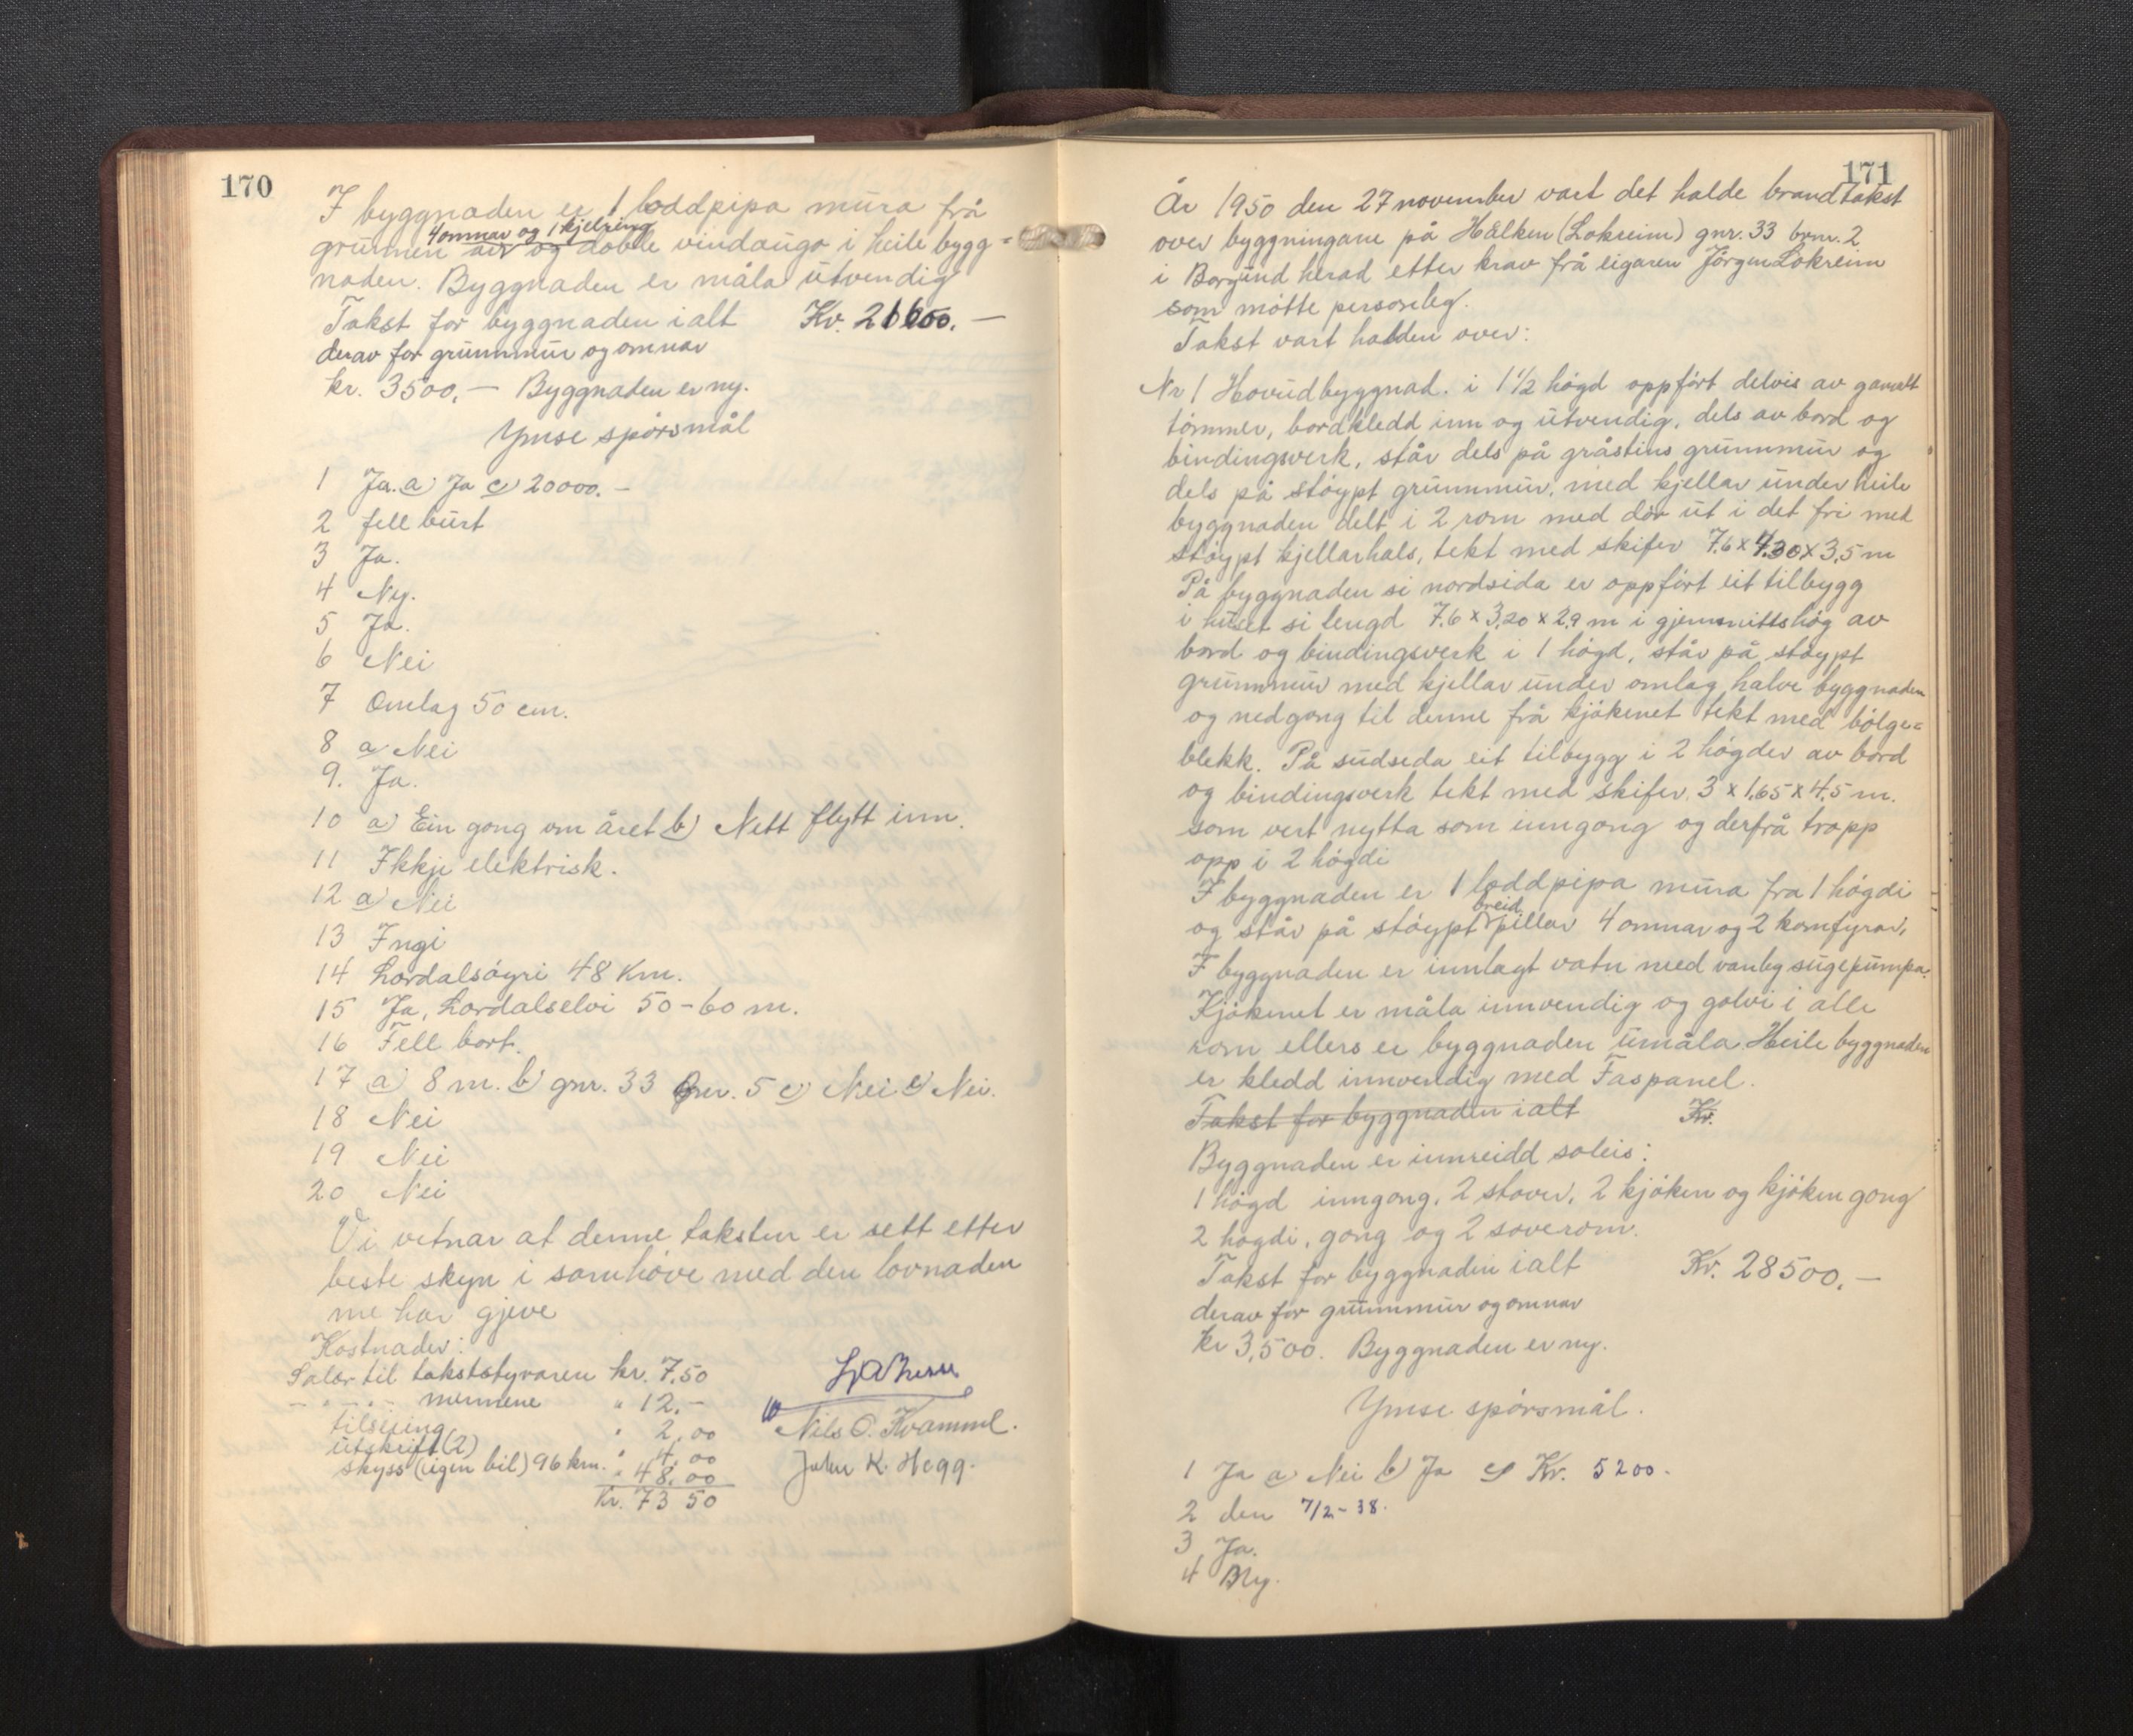 170
I byggnaden er 1 loddpipa mura frå
4 omnar og 1 kjelring
grunnen og doble vindaugo i heile bygg=
naden. Byggnaden er måla utvendig
Takst for byggnaden ialt Kr. 21600.—
derav for grunnmur og omnar
kr. 3500,— Byggnaden er ny.
Ymse spørsmål
1 Ja. a) Ja c) 20000.—
2 fell burt
3 Ja.
4 Ny.
5 Ja.
6 Nei
7 Omlag 50 cm.
8 a Nei
9. Ja.
10 a) Ein gong om året b) Nett flytt inn.
11 Ikkje elektrisk.
12 a) Nei
13 Ingi
14 Lærdalsøyri 48 Km.
15 Ja, Lærdalselvi 50-60 m.
16 Fell bort.
17 a) 8 m. b) gnr. 33 bnr. 5 c) Nei e) Nei.
18 Nei
19 Nei
20 Nei
Vi vitnar at denne taksten er sett etter
beste skyn i samhøve med den lovnaden
me har gjeve
Kostnader:
Salær til takststyraren kr. 7,50
" " mennene " 12.—
tilsejing " 2,00
utskrift (2) " 4,00
skyss (eigen bil) 96 km. " 48,00
Kr. 73 50
Nils O. Kvamme.
John K. Hegg.
171
År 1950 den 27 november vart det halde brandtakst
over byggningane på Hælken (Lokreim) gnr. 33 bnr. 2
i Borgund herad etter krav frå eigaren Jörgen Lokreim
som møtte personleg.
Takst vart halden over:
Nr 1 Hovudbyggnad. i 1 1/2 høgd oppført delvis av gamalt
tømmer, bordkledd inn og utvendig, dels av bord og
bindingsverk, står dels på gråsteins grunnmur og
dels på støypt grunnmur, med kjellar under heile
byggnaden delt i 2 rom med dør ut i det fri med
støypt kjellarhals, tekt med skifer 7,6 x 4,30 x 3,5 m
På byggnaden si nordsida er oppført eit tilbygg
i huset si lengd 7,6 x 3,20 x 2,9 m i gjennmittshøg av
bord og bindingsverk i 1 høgd, står på støypt
grunnmur med kjellar under omlag halve byggnaden
og nedgong til denne frå kjøkenet tekt med bølge=
blekk. På sudsida eit tilbygg i 2 høgder av bord
og bindingsverk tekt med skifer. 3 x 1,65 x 4,5 m.
som vert nytta som inngong og derfrå trapp
opp i 2 høgdi
I byggnaden er 1 loddpipa mura fra 1 høgdi
breid
og står på støypt pillar 4 omnar og 2 komfyrar.
I byggnaden er innlagt vatn med vanleg sugepumpa.
Kjøkenet er måla innvendig og golvi i alle
rom ellers er byggnaden umåla. Heile byggnaden
er kledd innvendig med Faspanel.
Takst for byggnaden ialt Kr.
Byggnaden er innreidd soleis:
1 høgd inngong, 2 stover, 2 kjøken og kjøken gong
2 høgdi, gong og 2 soverom.
Takst for byggnaden ialt Kr. 28500.—
derav for grunnmur og omnar
kr 3,500. Byggnaden er ny.
Ymse spørsmål.
1 Ja a) Nei b) Ja c) Kr. 5200.
2 den 7/2-38.
3 Ja.
4 Bly.